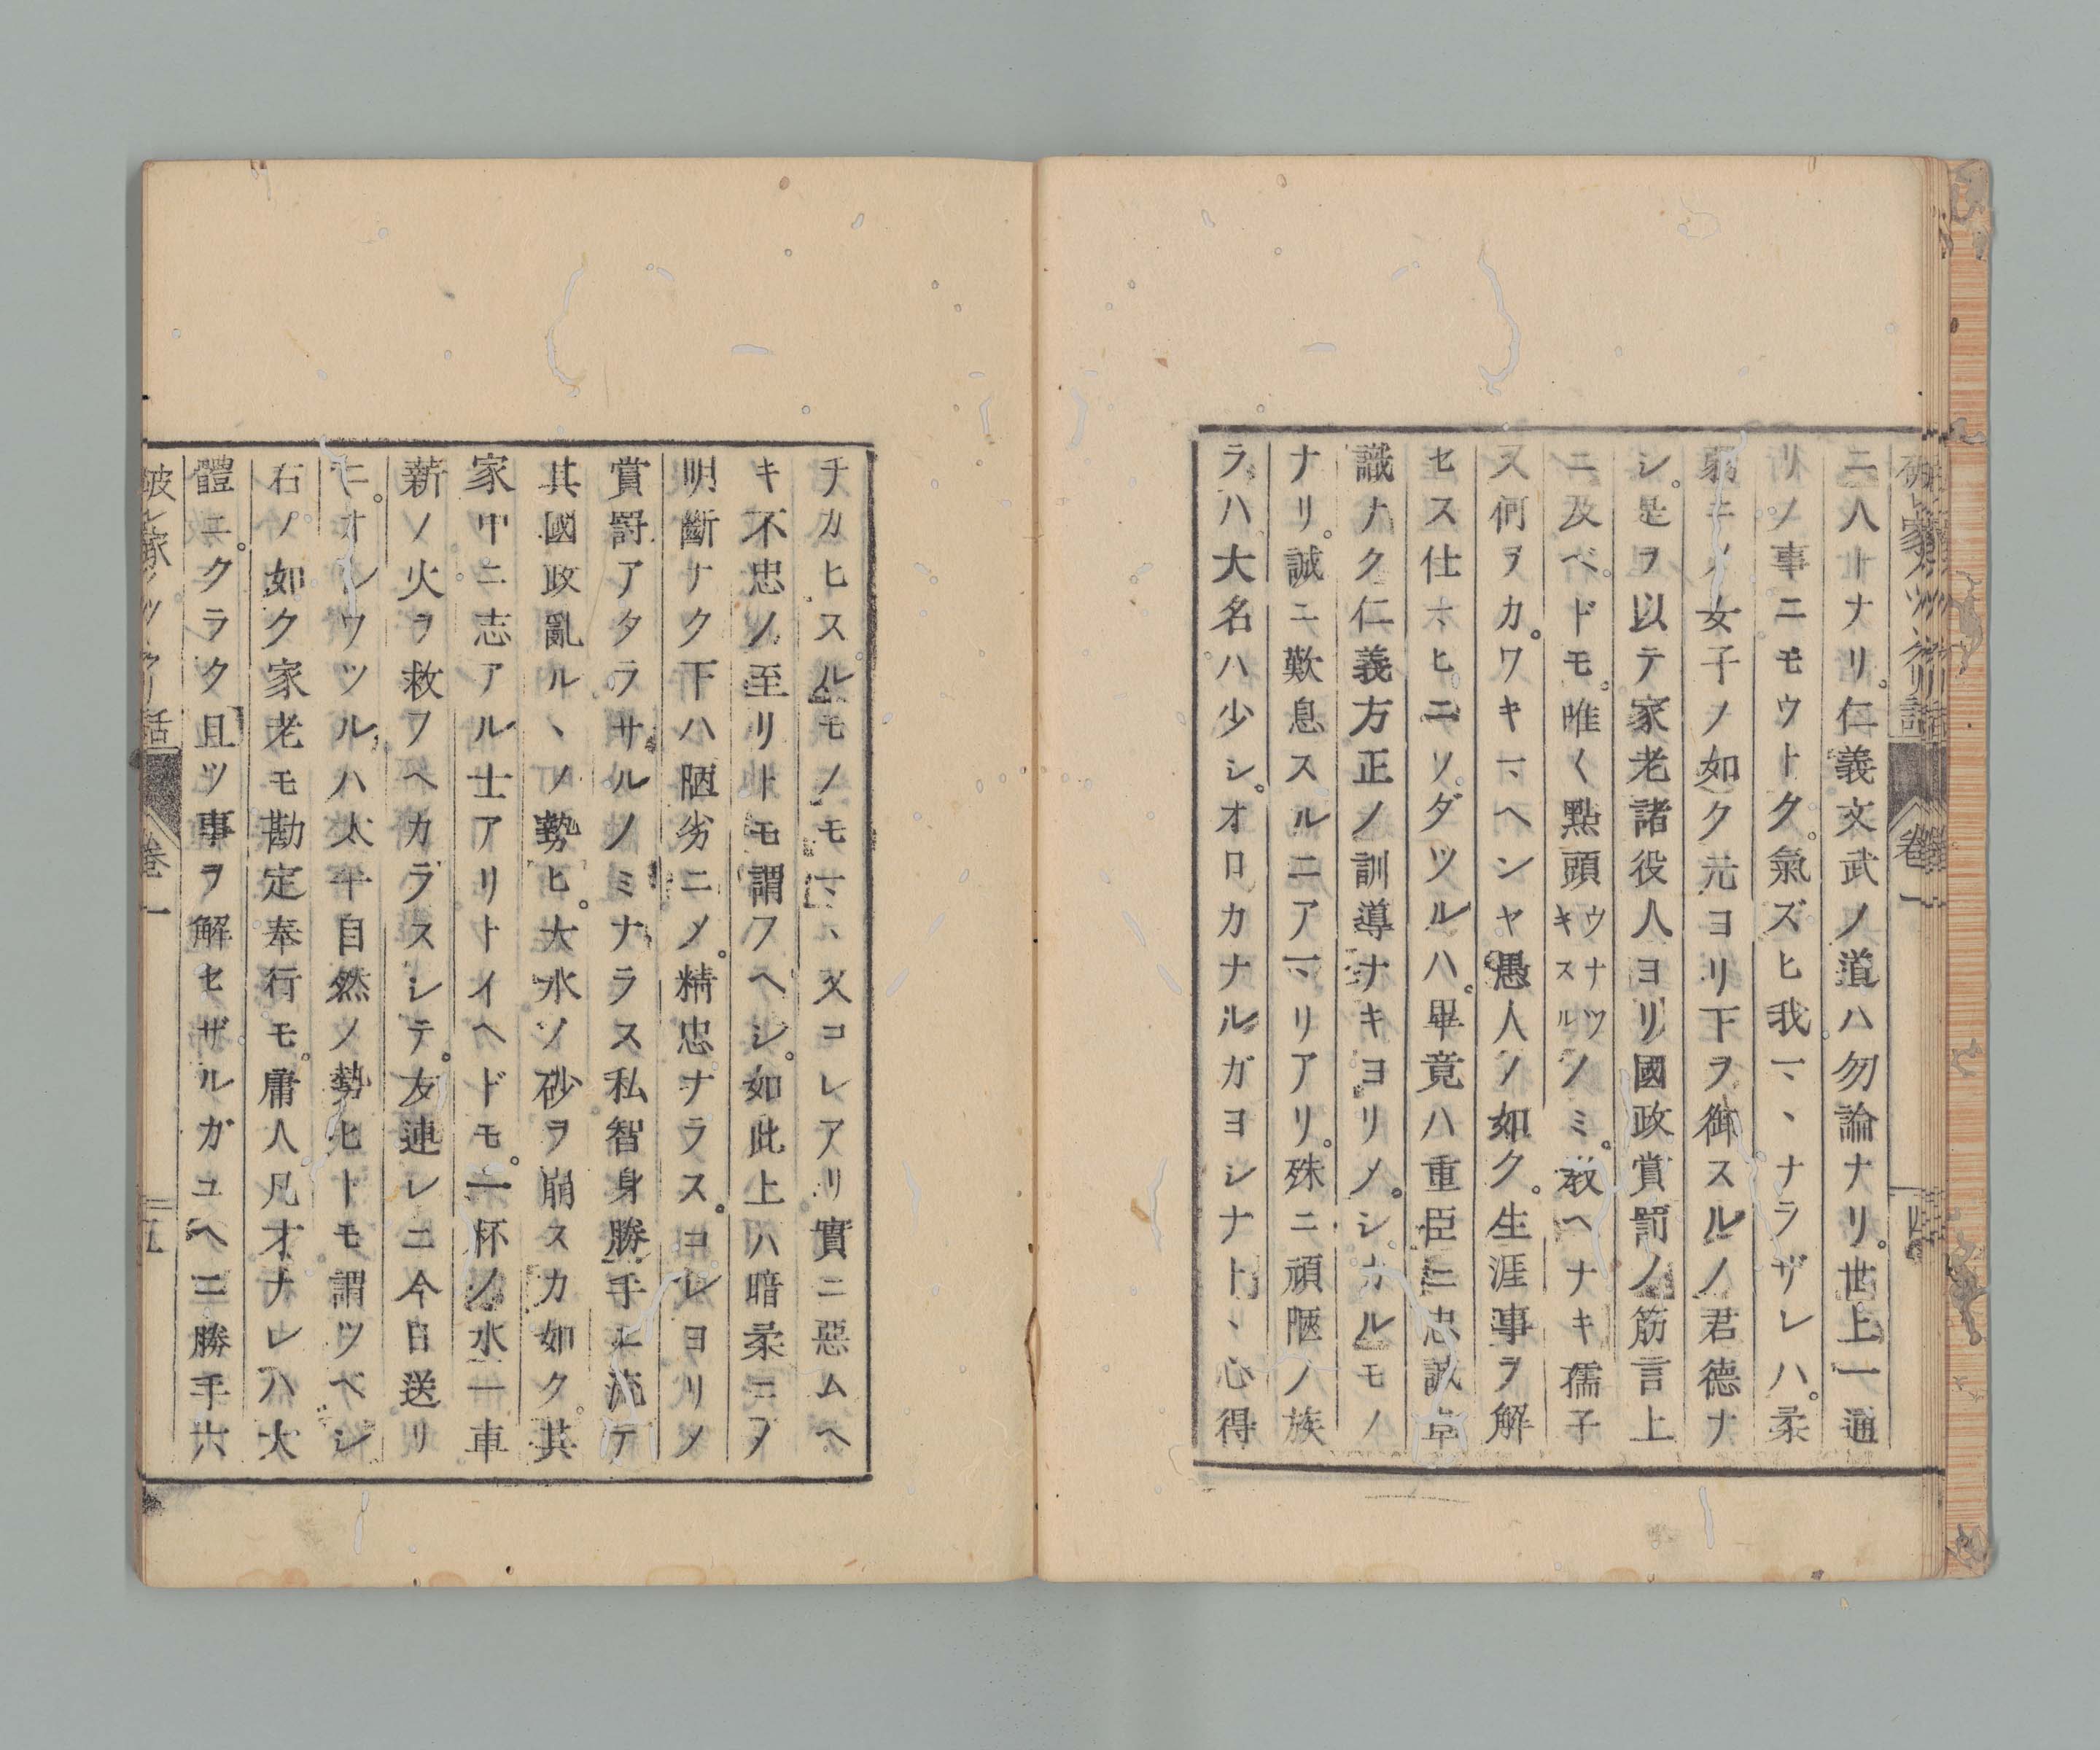 ニハ一ナリ。仁義文武ノ道ハ勿論ナリ。世上一通
リノ事ニモウトク。氣ズヒ我マヽナラザレハ。柔
弱ニノ女子ノ如ク元ヨリ下ヲ御スルノ君德ナ
シ。是ヲ以テ家老諸役人ヨリ國政賞罰ノ筋言上
ニ及ベドモ。唯〱點頭ウナツキスルノミ。教ヘナキ孺子
又何ヲカ。ワキマヘンヤ愚人ノ如ク。生涯事ヲ解
セス仕マヒニソ。ダツルハ。畢竟ハ重臣ニ忠誠卓
識ナク仁義方正ノ訓導ナキヨリメ。シカルモノ
ナリ。誠ニ歎息スルニアマリアリ。殊ニ頑陋ノ族
ラハ大名ハ少シ。オロカナルガヨシナトヽ心得
チカヒスルモノモマヽ又コレアリ實ニ惡ムヘ
キ不忠ノ至リトモ謂フヘシ。如此上ハ暗柔ニメ
明斷ナク下ハ陋劣ニメ。精忠ナラス。コレヨリメ
賞罸アタラサルノミナラス私智身勝手ニ流テ
其國政亂ルヽノ勢ヒ。大水ノ砂ヲ崩スカ如ク。其
家中ニ志アル士アリトイヘドモ。一杯ノ水一車
薪ノ火ヲ救フヘカラスシテ。友連レニ今日送リ
ニ。オシウツルハ太平自然ノ勢ヒトモ謂ツベシ
右ノ如ク家老モ勘定奉行モ。庸人凡才ナレハ大
體ニ。クラク且ツ事ヲ解セザルガユヘニ勝手六
破レ家ノツヽクリ話
卷一
五